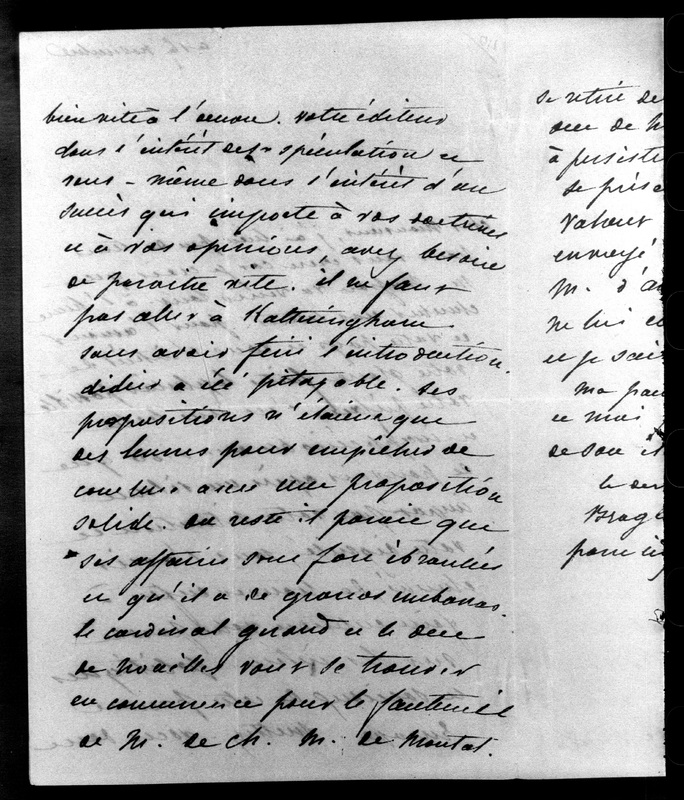 bien vite à l'œuvre. votre éditeur
dans l'intérêt de sa spéculation et
vous-même dans l'intérêt d'un
succès qui importe à vos doctrines
et à vos opinions avez besoin
de paraitre vite. il ne faut
pas aller à Ketteringham
sans avoir fini l'introduction.
didier a été pitoyable. ses
propositions n'étaient que
des leurres pour empêcher de
conclure avec une proposition
solide. du reste il parait que
ses affaires sont fort ébranlées
et qu'il a de grands embarras.
le cardinal giraud et le duc
de noailles vont se trouver
en concurrence pour le fauteuil
de M. de Ch. M. de Montal.
se retire de
duc de N
à persiste
se prése
Vatout
envoyé
M. d'a
ne lui co
et je sais
ma pau
ce mois
de son
le de